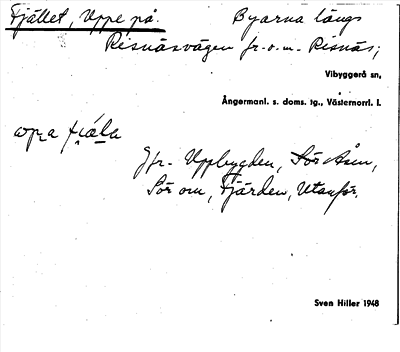 Fjället, Uppe på. Byarna längs
Risnäsvägen fr.o.m. Risnäs;
Vibyggerå sn,
Ångermanl. s. doms. tg., Västernorrl. l.
Jfr. Uppbygden, Sör Åen,
Sör om, Fjärden, Utanför.
Sven Hiller 1948